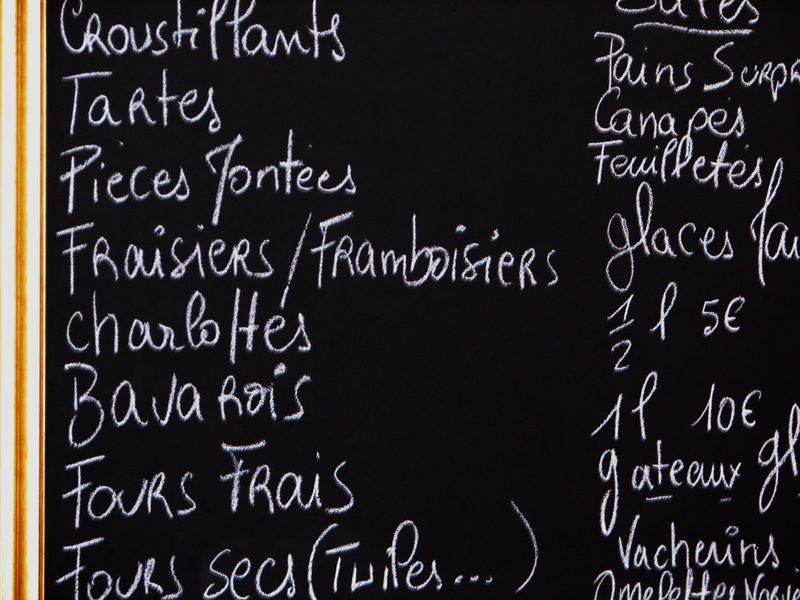 Croustillants
Tartes
Pièces Montées
Fraisiers / Framboisiers
charlottes
Bavarois
Fours Frais
Fours secs (Tuiles...)
Pains Surpr
Canapés
Feuilletés
glaces
1/2 l 5€
1l 10€
gateaux gl
Vacherins